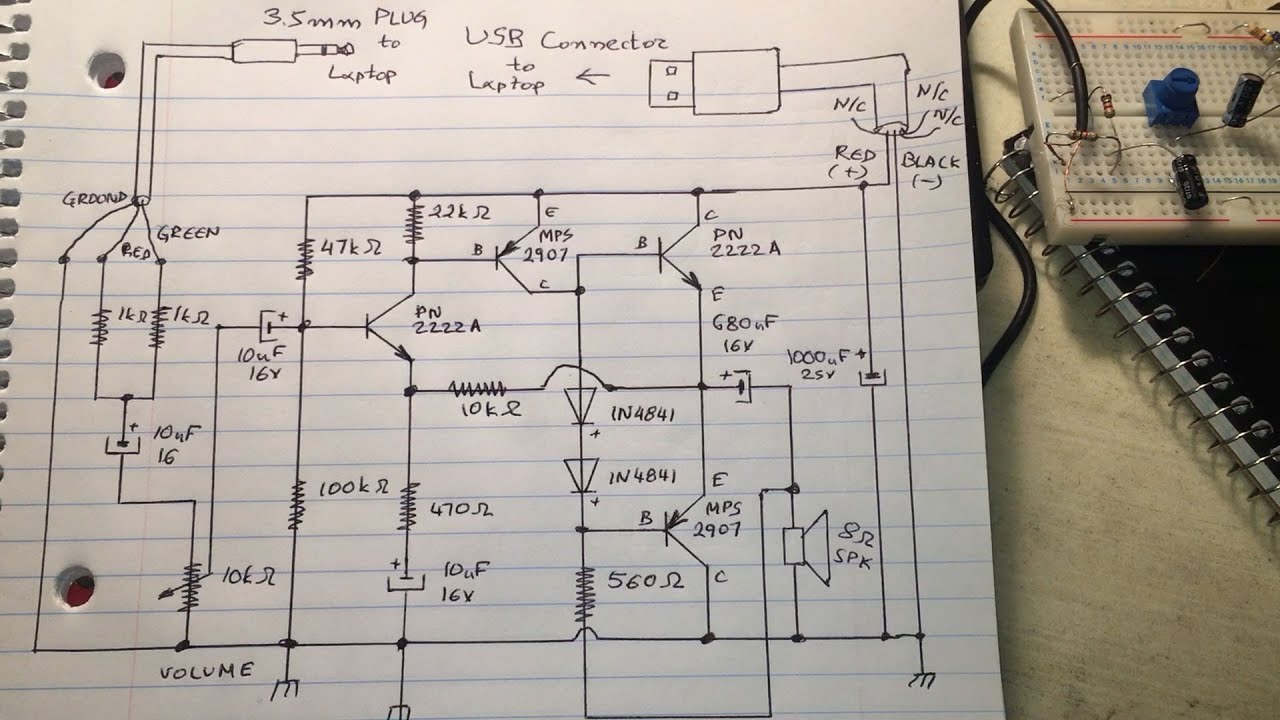 3.5mm PLUG
to
Laptop
USB Connector
to
Laptop
N/C
N/C
N/C
RED
(+)
BLACK
(-)
GROUND
RED
GREEN
47kΩ
22kΩ
E
B
MPS
2907
C
C
B
PN
2222A
E
1kΩ
1kΩ
+
10uF
16V
PN
2222A
680uF
16V
+
1000uF +
25V
10kΩ
1N4841
+
+
10uF
16
1N4841
+
100kΩ
470Ω
E
B
MPS
2907
C
8Ω
SPK
10kΩ
+
10uF
16V
560Ω
VOLUME